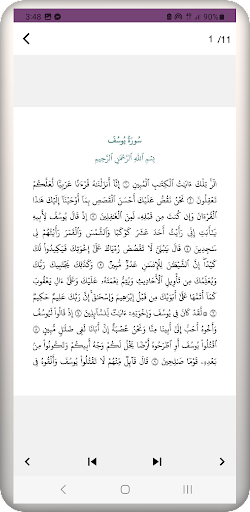 3:48 90%
1 /11
سُورَةُ يُوسُفَ
بِسْمِ ٱللَّهِ ٱلرَّحْمَٰنِ ٱلرَّحِيمِ
الٓر تِلْكَ ءَايَٰتُ ٱلْكِتَٰبِ ٱلْمُبِينِ ۝ إِنَّآ أَنزَلْنَٰهُ قُرْءَٰنًا عَرَبِيًّا لَّعَلَّكُمْ
تَعْقِلُونَ ۝ نَحْنُ نَقُصُّ عَلَيْكَ أَحْسَنَ ٱلْقَصَصِ بِمَآ أَوْحَيْنَآ إِلَيْكَ هَٰذَا
ٱلْقُرْءَانَ وَإِن كُنتَ مِن قَبْلِهِۦ لَمِنَ ٱلْغَٰفِلِينَ ۝ إِذْ قَالَ يُوسُفُ لِأَبِيهِ
يَٰٓأَبَتِ إِنِّي رَأَيْتُ أَحَدَ عَشَرَ كَوْكَبًا وَٱلشَّمْسَ وَٱلْقَمَرَ رَأَيْتُهُمْ لِي
سَٰجِدِينَ ۝ قَالَ يَٰبُنَيَّ لَا تَقْصُصْ رُءْيَاكَ عَلَىٰٓ إِخْوَتِكَ فَيَكِيدُوا۟ لَكَ
كَيْدًا إِنَّ ٱلشَّيْطَٰنَ لِلْإِنسَٰنِ عَدُوٌّ مُّبِينٌ ۝ وَكَذَٰلِكَ يَجْتَبِيكَ رَبُّكَ
وَيُعَلِّمُكَ مِن تَأْوِيلِ ٱلْأَحَادِيثِ وَيُتِمُّ نِعْمَتَهُۥ عَلَيْكَ وَعَلَىٰٓ ءَالِ يَعْقُوبَ
كَمَآ أَتَمَّهَا عَلَىٰٓ أَبَوَيْكَ مِن قَبْلُ إِبْرَٰهِيمَ وَإِسْحَٰقَ إِنَّ رَبَّكَ عَلِيمٌ حَكِيمٌ
۝ لَّقَدْ كَانَ فِي يُوسُفَ وَإِخْوَتِهِۦٓ ءَايَٰتٌ لِّلسَّآئِلِينَ ۝ إِذْ قَالُوا۟ لَيُوسُفُ
وَأَخُوهُ أَحَبُّ إِلَىٰٓ أَبِينَا مِنَّا وَنَحْنُ عُصْبَةٌ إِنَّ أَبَانَا لَفِي ضَلَٰلٍ مُّبِينٍ ۝
ٱقْتُلُوا۟ يُوسُفَ أَوِ ٱطْرَحُوهُ أَرْضًا يَخْلُ لَكُمْ وَجْهُ أَبِيكُمْ وَتَكُونُوا۟ مِنۢ
بَعْدِهِۦ قَوْمًا صَٰلِحِينَ ۝ قَالَ قَآئِلٌ مِّنْهُمْ لَا تَقْتُلُوا۟ يُوسُفَ وَأَلْقُوهُ فِي